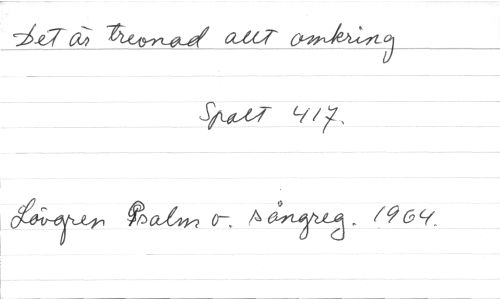 Det är treonad allt omkring
Spalt 417.
Lövgren Psalm o. sångreg. 1964.